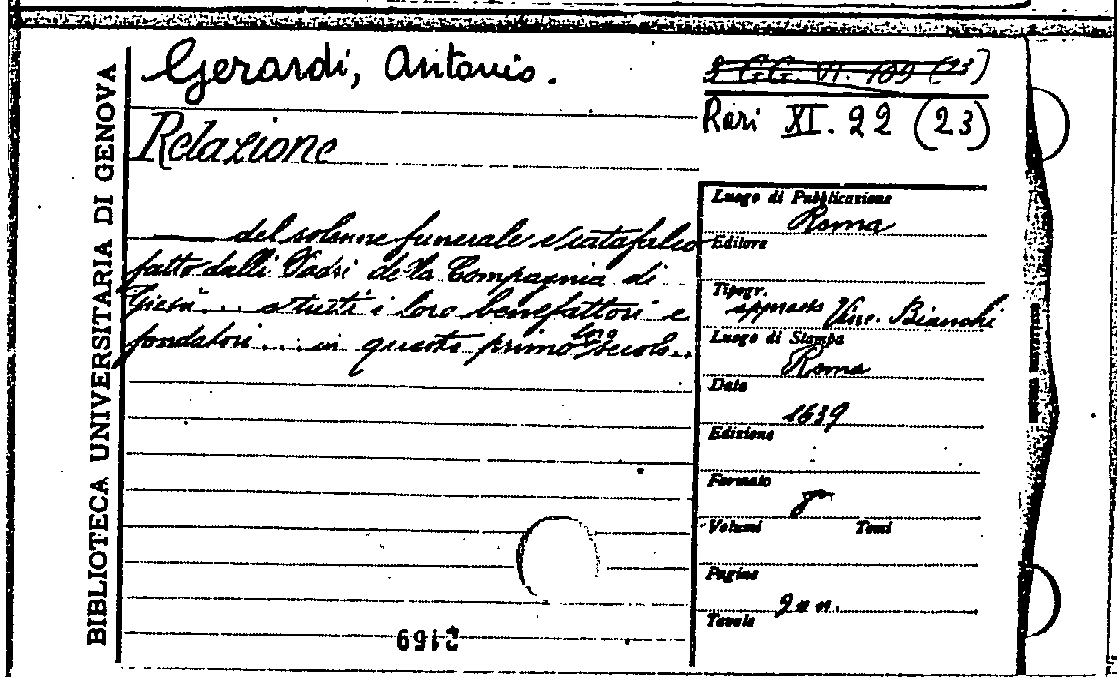 BIBLIOTECA UNIVERSITARIA DI GENOVA
Gerardi, Antonio.
VI. 109 (23)
Rari XI. 22 (23)
Relazione
del solenne funerale e catafalco
fatto dalli Padri de la Compagnia di
Giesù... a tutti i loro benefattori e
fondatori... in questo primo loro secolo..
Luogo di Pubblicazione
Roma
Editore
Tipogr.
appresso Vinc. Bianchi
Luogo di Stampa
Roma
Data
1639
Edizione
Formato
8°
Volumi Tomi
Pagine
2 n.n.
Tavole
2169